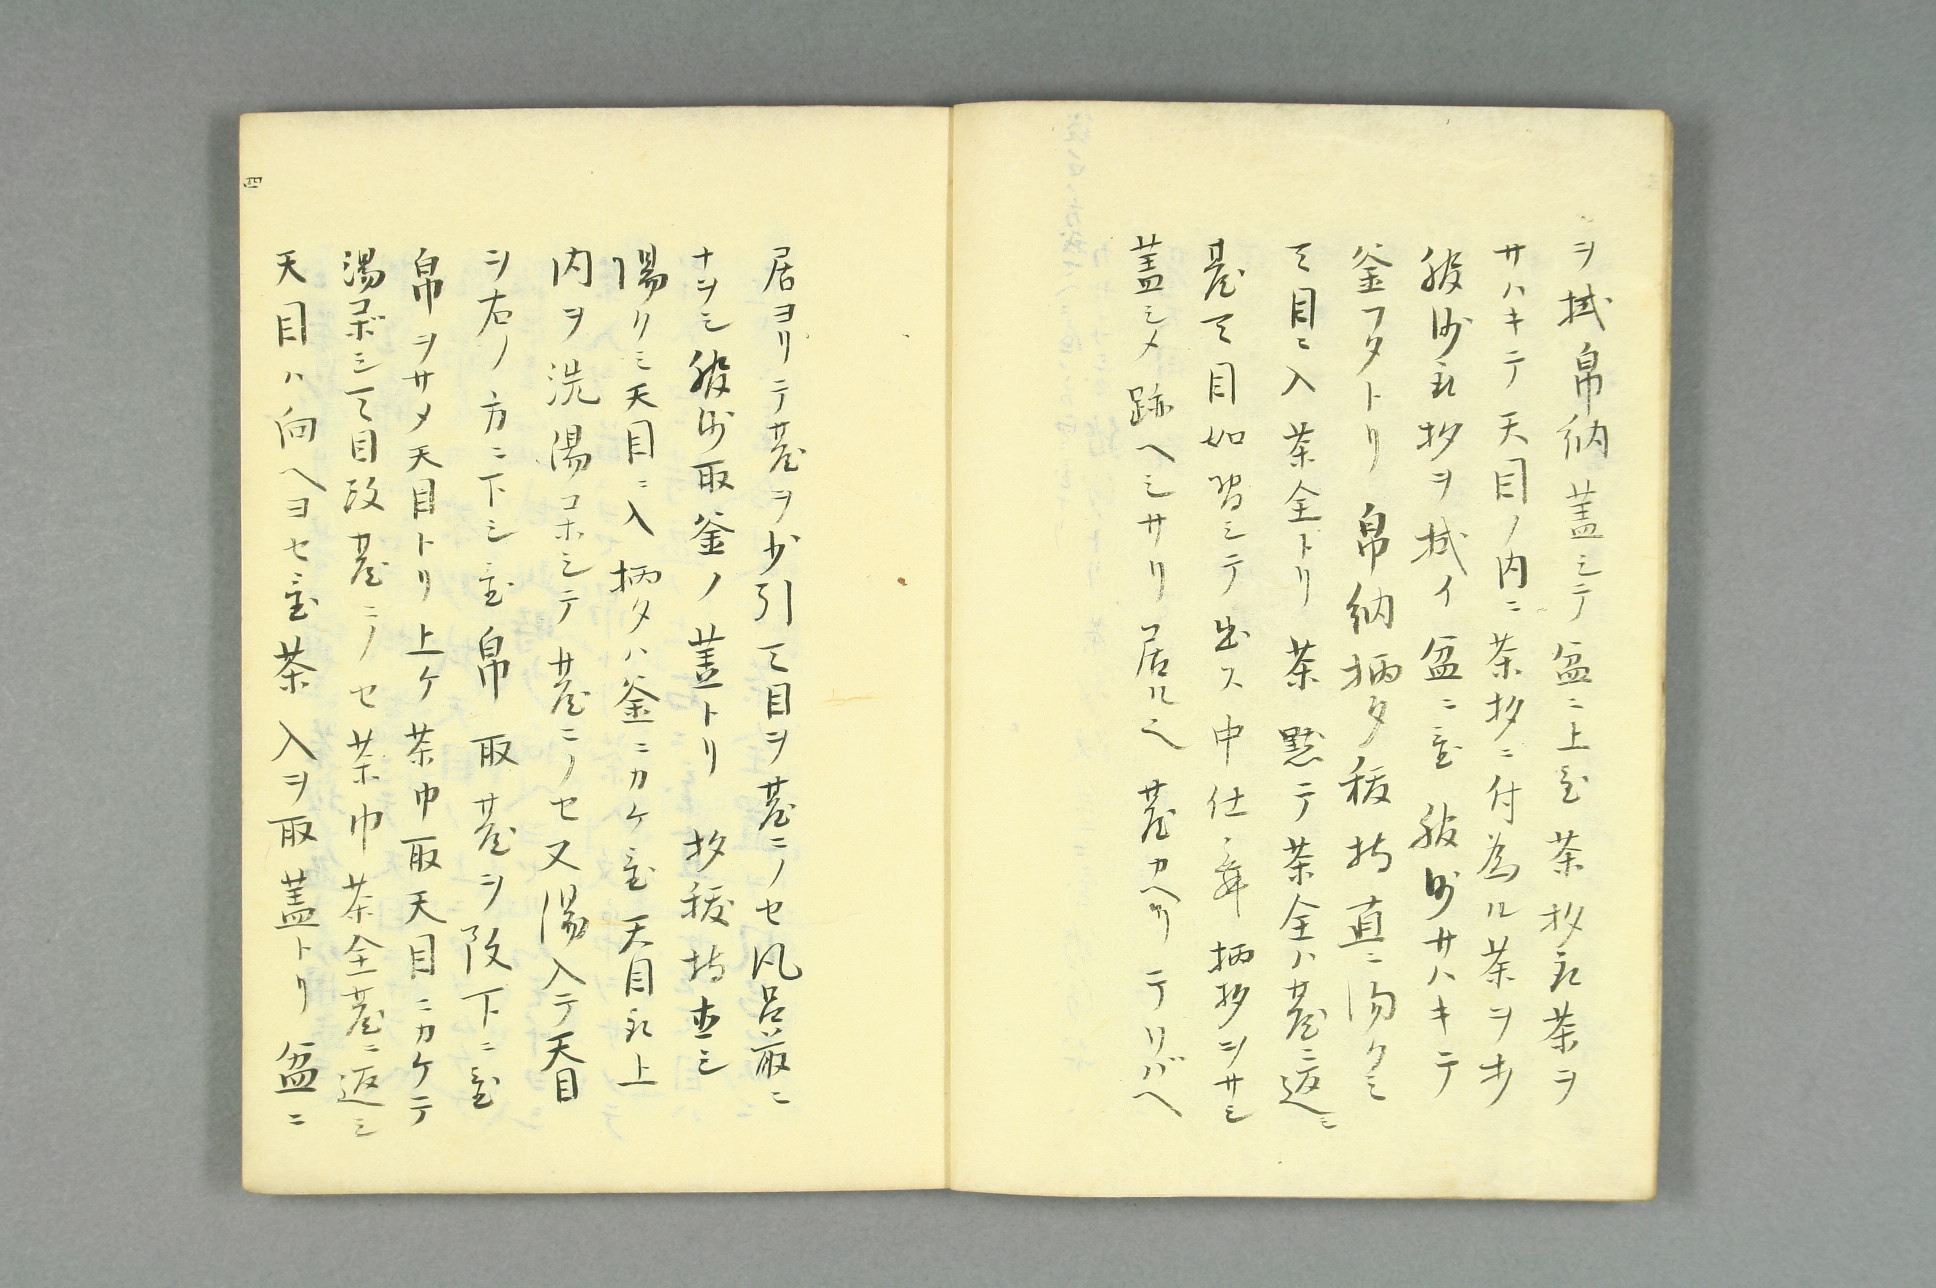 ヲ拭帛納蓋シテ盆ニ上置茶杓取茶ヲ
サハキテ天目ノ内ニ茶杓ニ付為ル茶ヲホ
服紗取杓ヲ拭イ盆ニ置服紗サハキテ
釜フタトリ帛納柄タ扱持直ニ湯クミ
天目ニ入茶全トリ茶點テ茶全ハ臺ニ返シ
臺天目如習シテ出ス中仕舞柄杓ヲサシ
蓋シメ跡ヘシサリ居ル之臺カヘリテリバヘ
居ヨリテ臺ヲ少引天目ヲ臺ニノセ風呂敷ニ
ナヲシ服紗取釜ノ蓋トリ杓扱持直シ
湯クミ天目ニ入柄タハ釜ニカケ置天目取上
内ヲ洗湯コホシテ臺ニノセ又湯入テ天目
ヲ右ノ方ニ下シ置帛取臺ヲ改下ニ置
帛ヲサメ天目トリ上ケ茶巾取天目ニカケテ
湯コボシ天目改臺ニノセ茶巾茶全臺ニ返シ
天目ハ向ヘヨセ置茶入ヲ取蓋トリ盆ニ
四